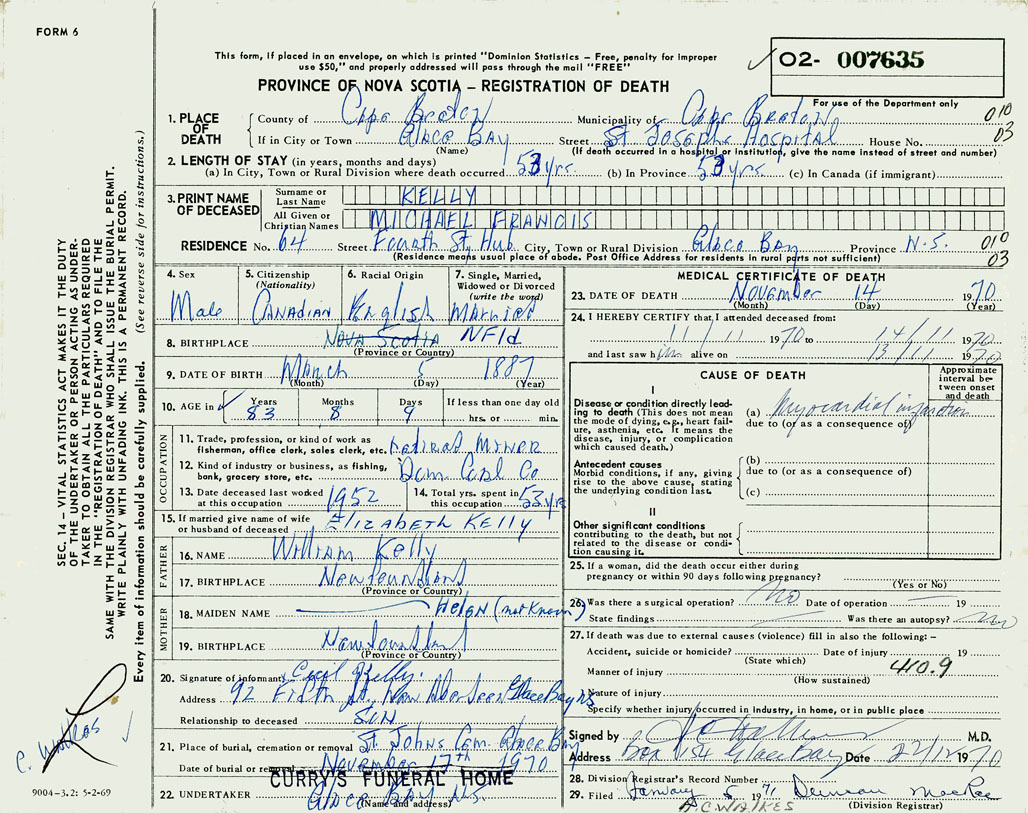 FORM 6
This form, if placed in an envelope, on which is printed "Dominion Statistics - Free, penalty for improper
use $50," and properly addressed will pass through the mail "FREE"
02- 007635
PROVINCE OF NOVA SCOTIA – REGISTRATION OF DEATH
For use of the Department only
1. PLACE OF DEATH
County of Cape Breton Municipality of Cape Breton 010
If in City or Town Glace Bay Street St Josephs Hospital House No. 03
(Name) (If death occurred in a hospital or institution, give the name instead of street and number)
2. LENGTH OF STAY (in years, months and days)
(a) In City, Town or Rural Division where death occurred 53 yrs. (b) In Province 53 yrs. (c) In Canada (if immigrant)
3. PRINT NAME OF DECEASED
Surname or Last Name KELLY
All Given or Christian Names MICHAEL FRANCIS
RESIDENCE No. 64 Street Fourth St, Hub City, Town or Rural Division Glace Bay Province N.S. 010
(Residence means usual place of abode. Post Office Address for residents in rural parts not sufficient) 03
4. Sex
Male
5. Citizenship
(Nationality)
Canadian
6. Racial Origin
English
7. Single, Married,
Widowed or Divorced
(write the word)
Married
8. BIRTHPLACE Nova Scotia NFld
(Province or Country)
9. DATE OF BIRTH March 5 1887
(Month) (Day) (Year)
10. AGE in Years Months Days If less than one day old
83 8 9 hrs. or min.
OCCUPATION
11. Trade, profession, or kind of work as
fisherman, office clerk, sales clerk, etc. retired Miner
12. Kind of industry or business, as fishing,
bank, grocery store, etc. Dom. Coal Co
13. Date deceased last worked
at this occupation 1952
14. Total yrs. spent in
this occupation 53 yrs
15. If married give name of wife
or husband of deceased Elizabeth Kelly
FATHER
16. NAME William Kelly
17. BIRTHPLACE Newfoundland
(Province or Country)
MOTHER
18. MAIDEN NAME Helen (not Known)
19. BIRTHPLACE Newfoundland
(Province or Country)
20. Signature of informant Cecil Kelly.
Address 92 Fifth St. New Aberdeen Glace Bay NS
Relationship to deceased Son
21. Place of burial, cremation or removal St Johns Cem. Glace Bay
Date of burial or removal November 17th 1970
CURRY'S FUNERAL HOME
22. UNDERTAKER Glace Bay N.S.
(Name and address)
MEDICAL CERTIFICATE OF DEATH
23. DATE OF DEATH November 14 1970
(Month) (Day) (Year)
24. I HEREBY CERTIFY that I attended deceased from:
11/11 1970 to 14/11 1970
and last saw him alive on 13/11 1970
CAUSE OF DEATH
Approximate interval between onset and death
I
Disease or condition directly leading to death (This does not mean the mode of dying, e.g., heart failure, asthenia, etc. It means the disease, injury, or complication which caused death.)
(a) Myocardial infarction
due to (or as a consequence of)
Antecedent causes
Morbid conditions, if any, giving rise to the above cause, stating the underlying condition last.
(b)
due to (or as a consequence of)
(c)
II
Other significant conditions
contributing to the death, but not related to the disease or condition causing it.
25. If a woman, did the death occur either during
pregnancy or within 90 days following pregnancy?
(Yes or No)
26. Was there a surgical operation? no Date of operation 19
State findings Was there an autopsy? no
27. If death was due to external causes (violence) fill in also the following: –
Accident, suicide or homicide? Date of injury 19
(State which)
Manner of injury 410.9
(How sustained)
Nature of injury
Specify whether injury occurred in industry, in home, or in public place
Signed by M.D.
Address Box 454 Glace Bay Date 22/12 1970
28. Division Registrar's Record Number
29. Filed January 5 1971 Duncan MacRae
A.C. WALKES (Division Registrar)
SEC. 14 – VITAL STATISTICS ACT MAKES IT THE DUTY
OF THE UNDERTAKER OR PERSON ACTING AS UNDER-
TAKER TO OBTAIN ALL THE PARTICULARS REQUIRED
IN THE "REGISTRATION OF DEATH" AND TO FILE THE
SAME WITH THE DIVISION REGISTRAR WHO SHALL ISSUE THE BURIAL PERMIT.
WRITE PLAINLY WITH UNFADING INK. THIS IS A PERMANENT RECORD.
Every item of information should be carefully supplied. (See reverse side for instructions.)
9004-3.2: 5-2-69